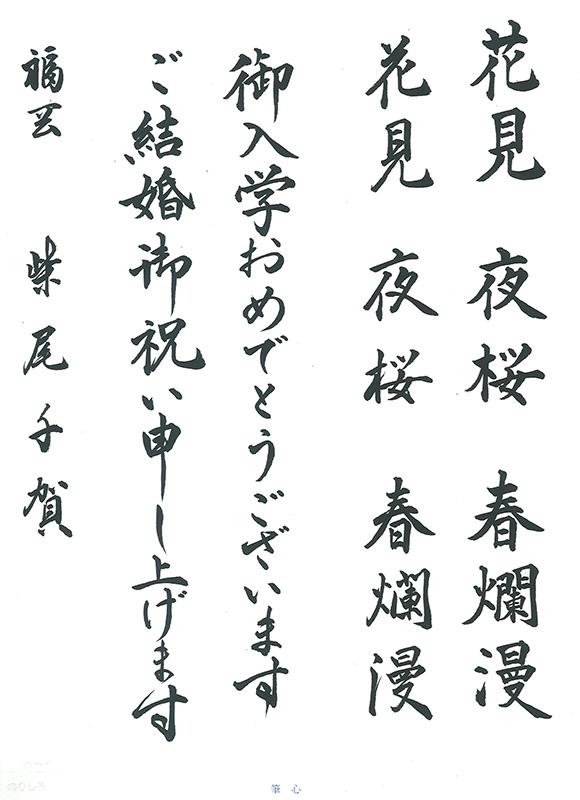 花見 夜桜 春爛漫
花見 夜桜 春爛漫
御入学おめでとうございます
ご結婚御祝い申し上げます
福岡 柴尾千賀
筆心
のりしろ